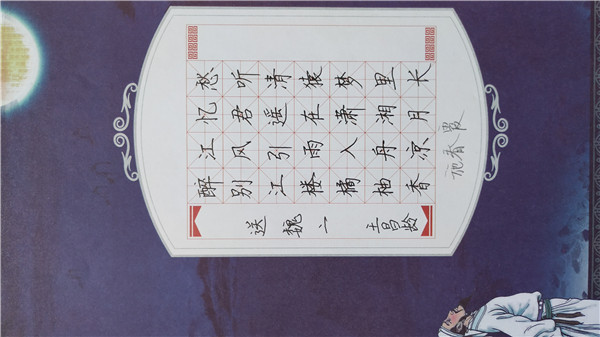 送魏二 王昌龄
醉别江楼橘柚香
江风引雨入舟凉
忆君遥在潇湘月
愁听清猿梦里长
香霞